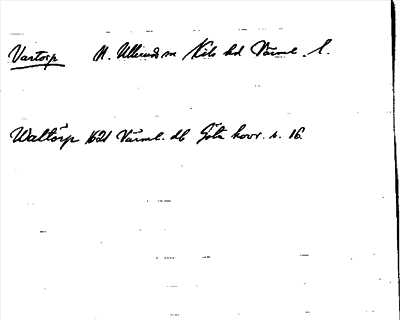 Vartorp N. Ullerud sn Kils hd Värml. l.
Waltorp 1621 Värml. db Göta hovr. s. 16.